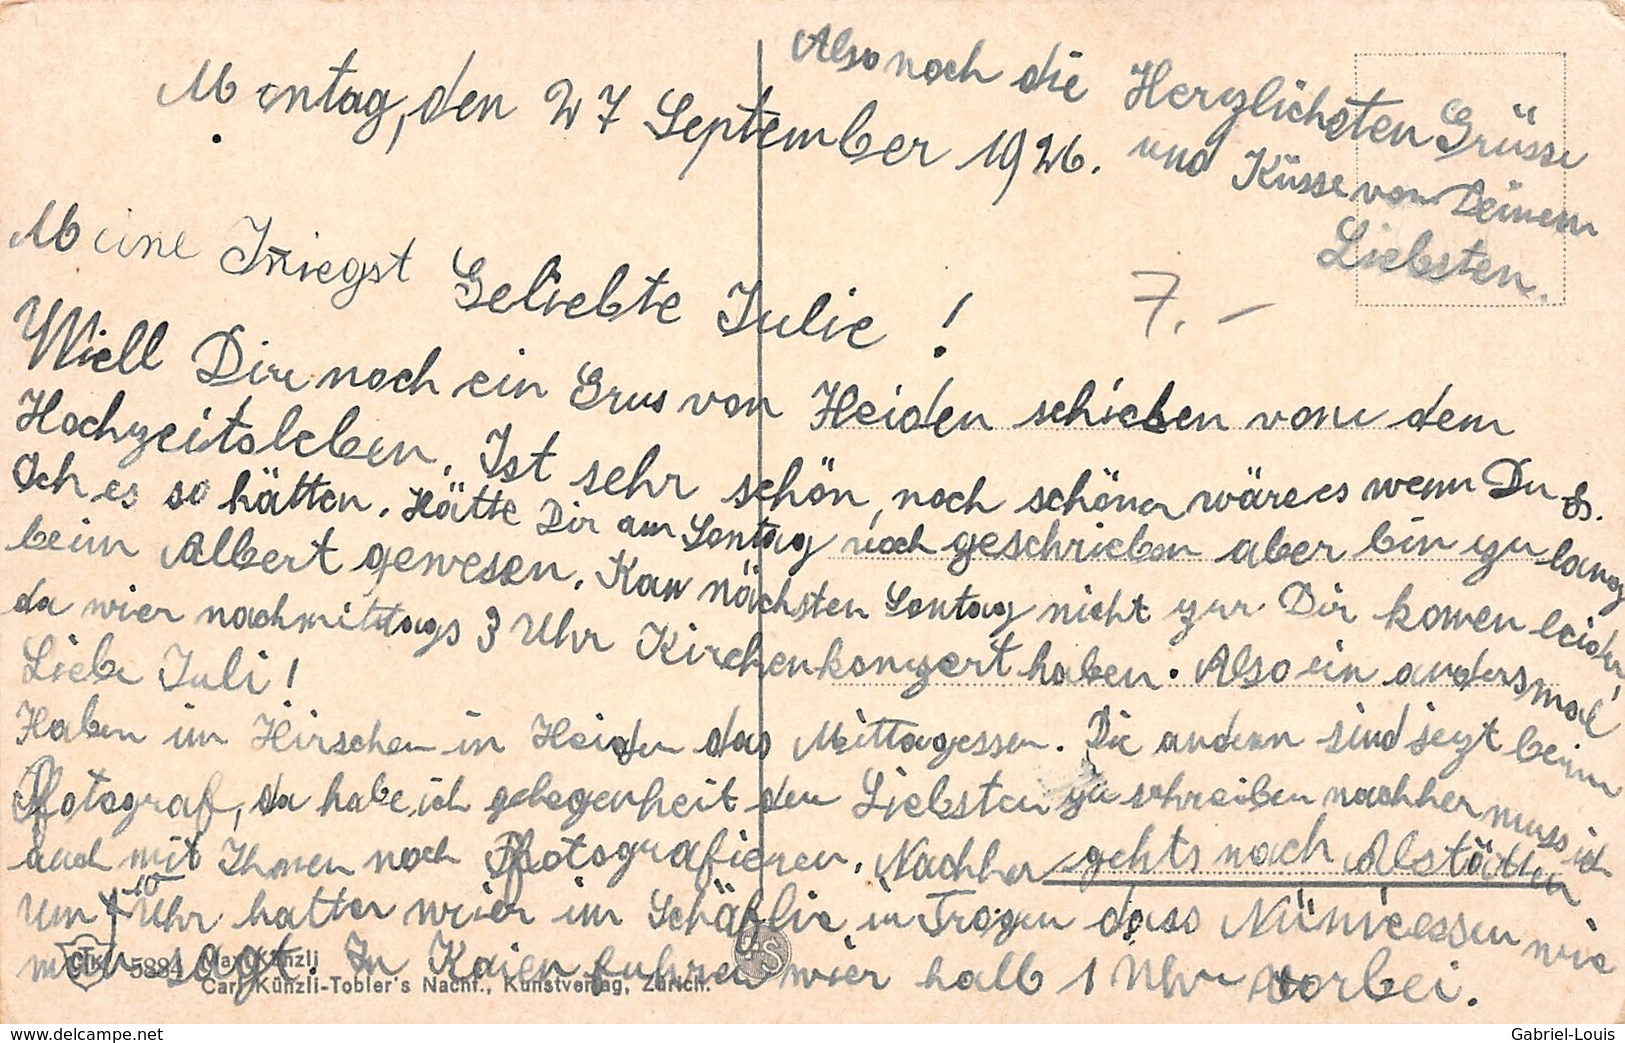 Montag, den 27 September 1926.
Also noch die Herzlichsten Grüsse
und Küsse von Deinem
Liebsten.
7.-
Meine Geliebte Julie !
Wiell Dir noch ein Grus von Heiden schieben vom dem
Hochzeitsleben. Ist sehr schön, noch schöner wäre es wenn Du &.
Ich es so hätten. Hätte Dir am Sontag noch geschrieben aber bin zu lang
beim Albert gewesen. Kan nächsten Sontag nicht zur Dir komen leider,
da wier nachmittags 3 Uhr Kirchenkonzert haben. Also ein andersmal
Liebe Juli!
Haben im Hirschen in Heiden das Mittagessen. Die andern sind jezt beim
Pfotograf, da habe ich gelegenheit der Liebsten zu schreiben nachher muss ich
auch mit Ihnen noch Pfotografieren. Nachher gehts nach Alstätten
Um 10 Uhr hatten wier im Schäflie in Trogen dass Nünieessen wie
man sagt. In Kaien fuhren wier halb 1 Uhr vorbei.
5884 May Künzli
Carl Künzli-Tobler's Nachf., Kunstverlag, Zürich.
delcampe.net
Gabriel-Louis